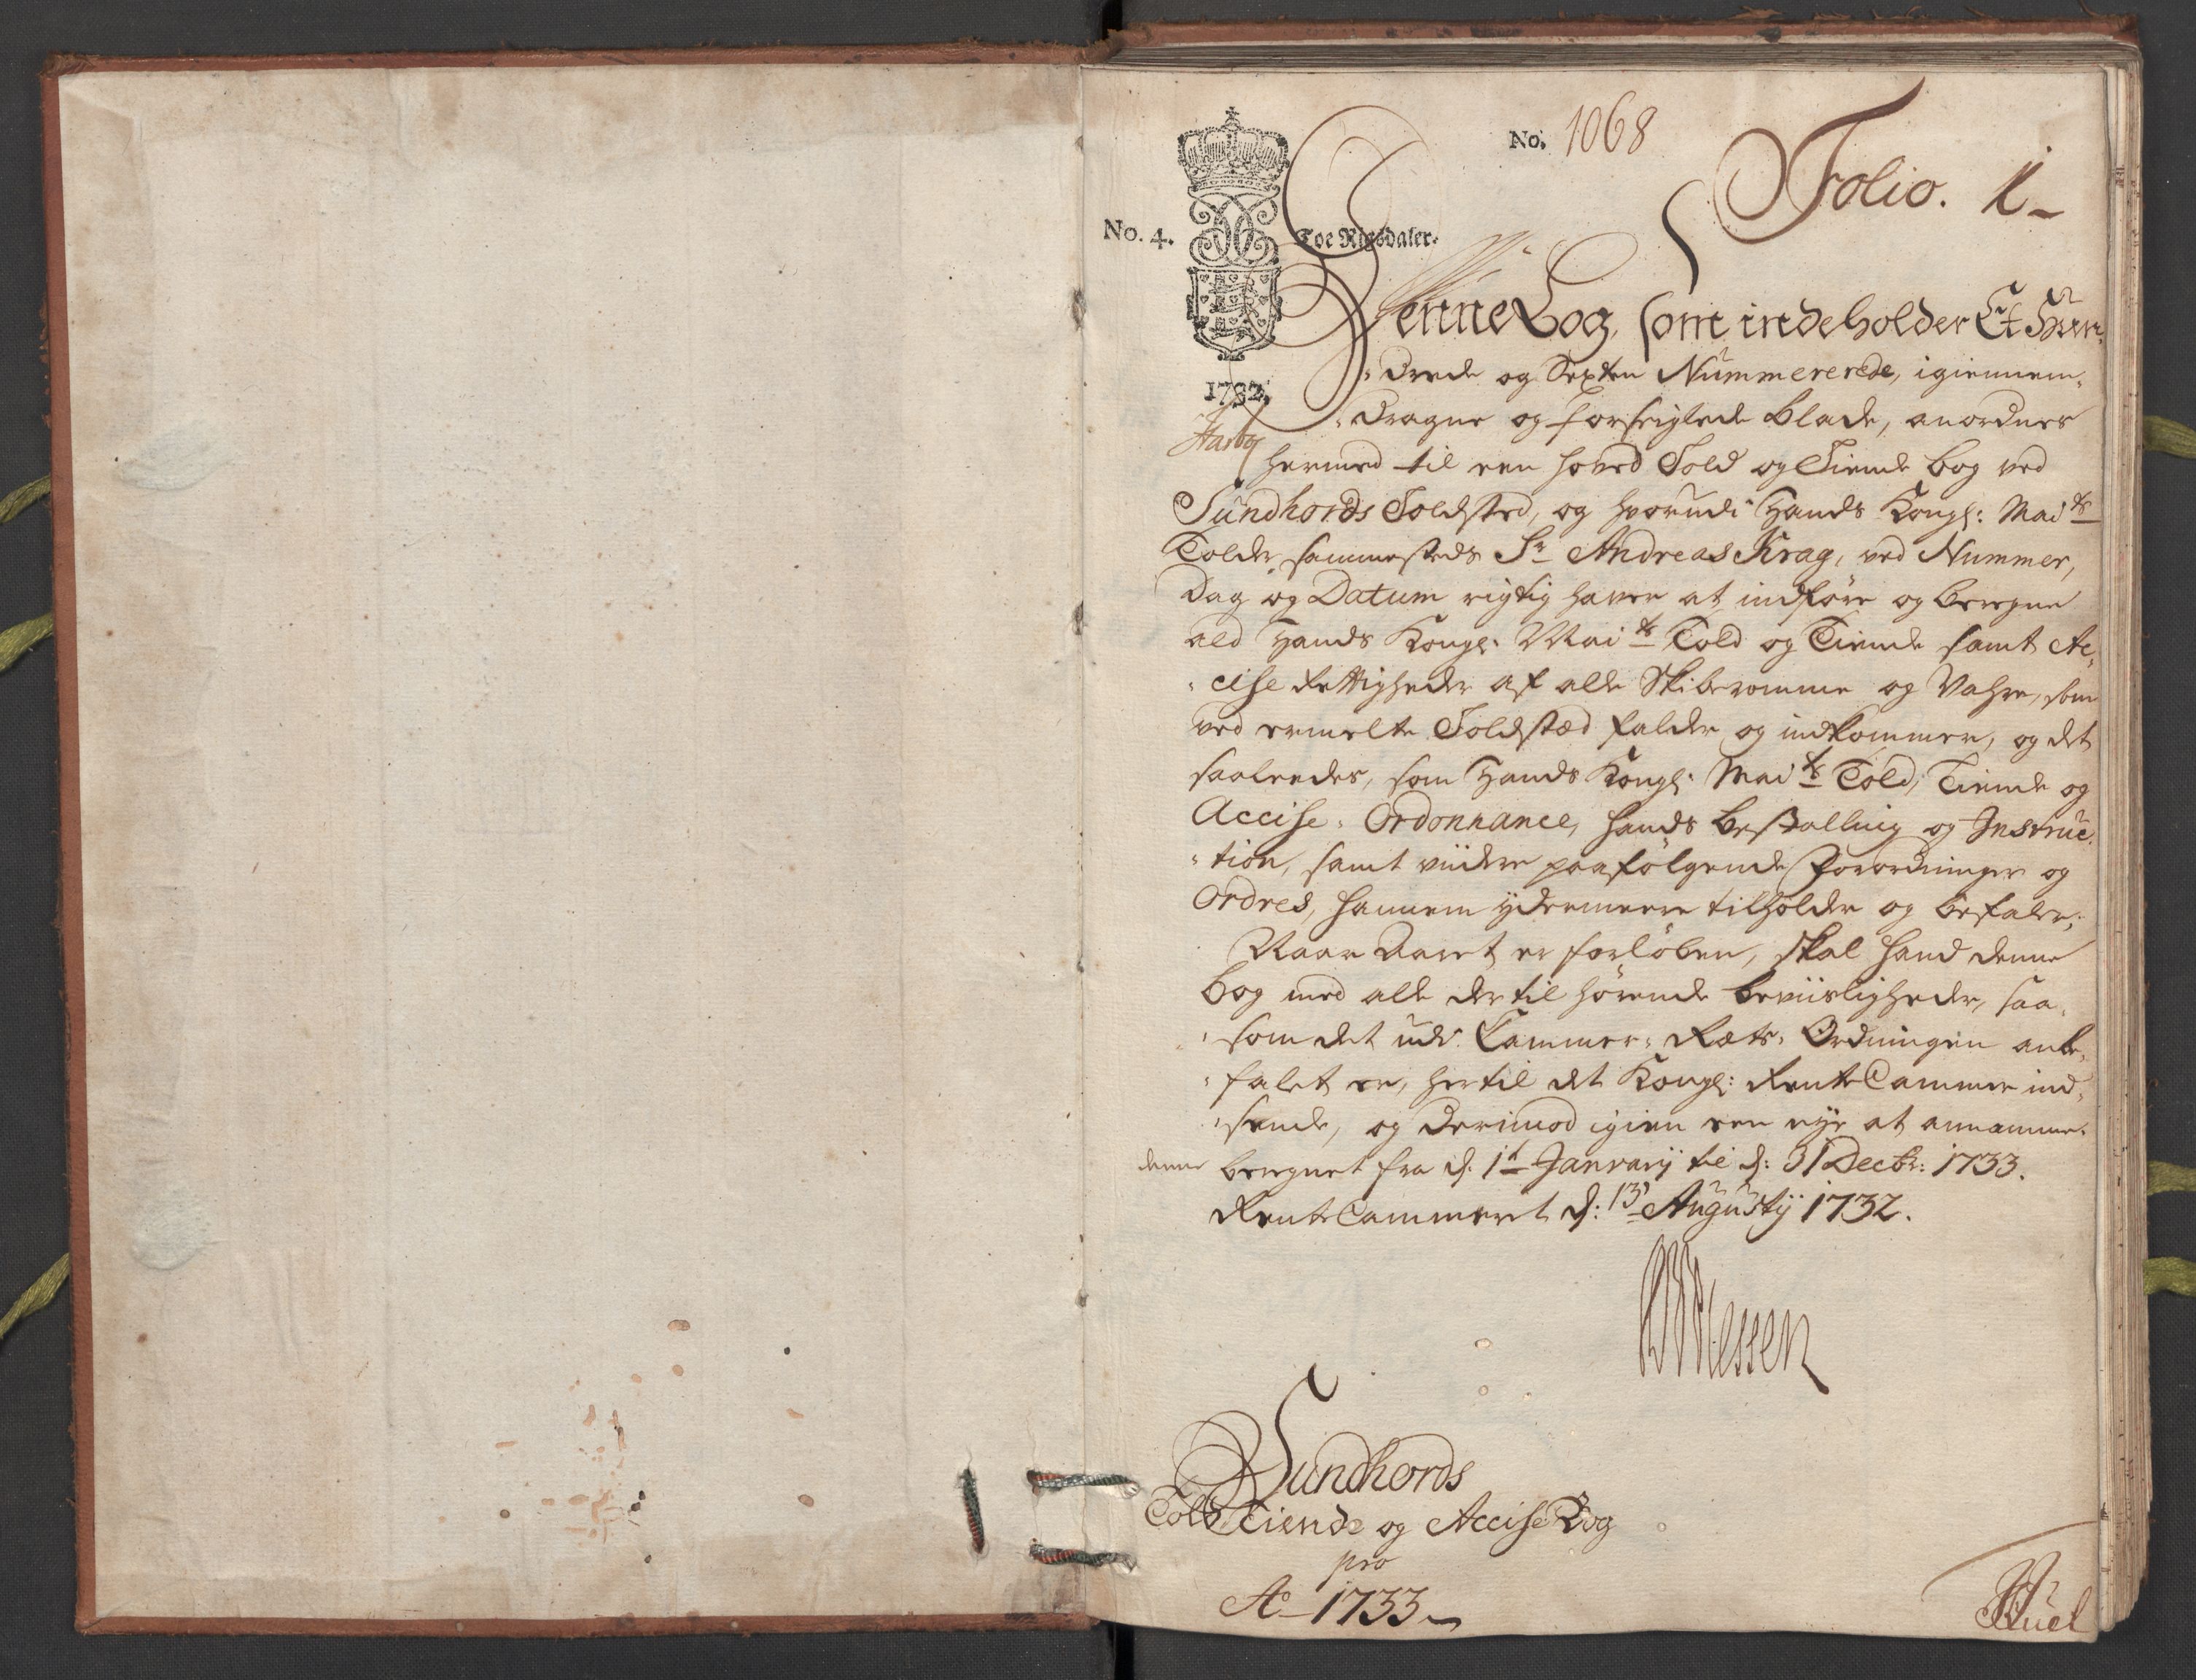 No. 1068
Folio. 1
No. 4. Toe Rigsdaler.
Denne Bog, som indeholder Et Hun-
drede og Sexten Nummererede, igiennem-
dragne og forseiglede Blade, anordnes
1732.
hermed til een hoved Told og Tiende bog ved
Sundhords Toldsted, og hvorudi Hands Kongl: Maits
Tolder sammesteds Sr Andreas Krag, ved Nummer,
Dag og Datum rigtig haver at indføre og beregne
ald Hands Kongl: Maits Told og Tiende samt Ac-
cise Rettigheder af alle Skibsromme og Vahre, som
ved ermelte Toldsted falder og indkommer, og det
saaledes, som Hands Kongl: Maits Told, Tiende og
Accise-Ordonnance, hands bestalling og Instruc-
tion, samt viidere paafølgende Forordninger og
Ordres, hannem ydermeere tilholder og befaler;
Naar Aaret er forløben, skal hand denne
bog med alle der til hørende beviisligheder, saa-
som det udi Cammer-Rets-Ordningen anbe-
falet er, her til det Kongl: Rente Cammer ind-
sende, og derimod igien een nye at annamme.
denne beregnet fra d: 1t January til d: 31 Decbr: 1733.
Rente Cammeret d: 13 Augusty 1732.
Sundhords
Told Tiende og Accise Bog
pro
Ao 1733